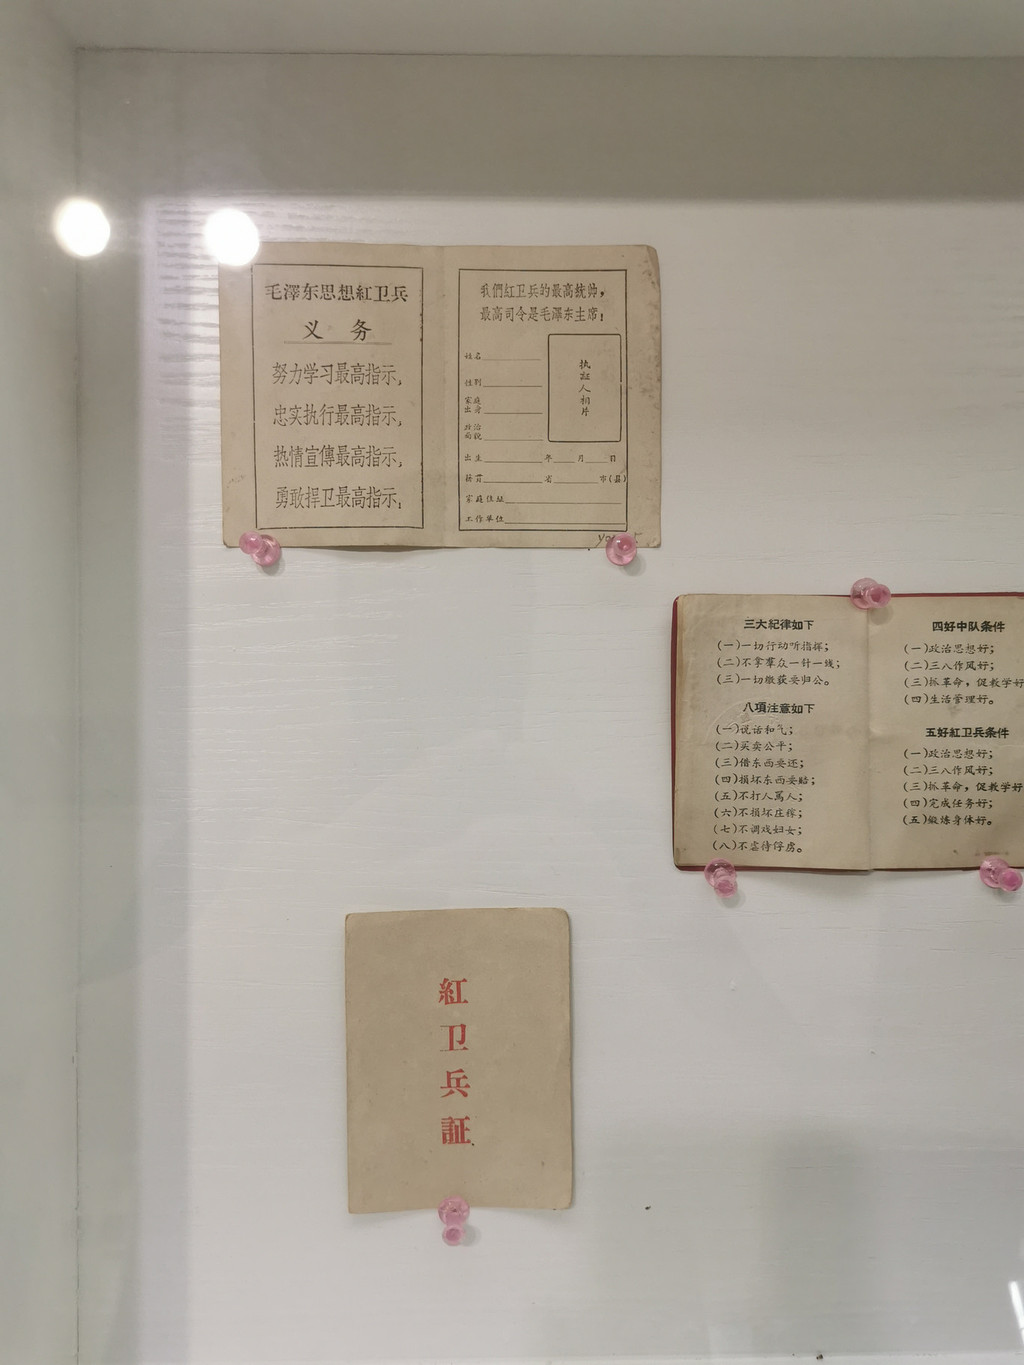 毛澤东思想紅卫兵
义 务
努力学习最高指示,
忠实执行最高指示,
热情宣傳最高指示,
勇敢捍卫最高指示!
我們紅卫兵的最高統帅,
最高司令是毛澤东主席!
执証人相片
姓名
性别
家庭
出身
政治
面貌
出生 年 月 日
籍貫 省 市(县)
家庭住址
工作单位
三大紀律如下
(一)一切行动听指挥;
(二)不拿羣众一针一线;
(三)一切缴获要归公。
八項注意如下
(一)说话和气;
(二)买卖公平;
(三)借东西要还;
(四)损坏东西要赔;
(五)不打人罵人;
(六)不损坏庄稼;
(七)不调戏妇女;
(八)不虐待俘虏。
四好中队条件
(一)政治思想好;
(二)三八作风好;
(三)抓革命,促教学好
(四)生活管理好。
五好紅卫兵条件
(一)政治思想好;
(二)三八作风好;
(三)抓革命,促教学好
(四)完成任务好;
(五)锻炼身体好。
紅卫兵証